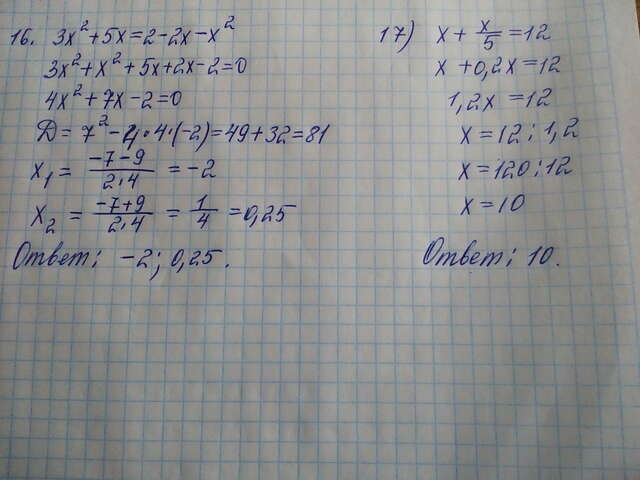 16. 3x²+5x=2-2x-x²
3x²+x²+5x+2x-2=0
4x²+7x-2=0
D=7²-4·4·(-2)=49+32=81
x₁=(-7-9)/(2·4)=-2
x₂=(-7+9)/(2·4)=1/4=0,25
Ответ: -2; 0,25.
17) x+x/5=12
x+0,2x=12
1,2x=12
x=12:1,2
x=120:12
x=10
Ответ: 10.